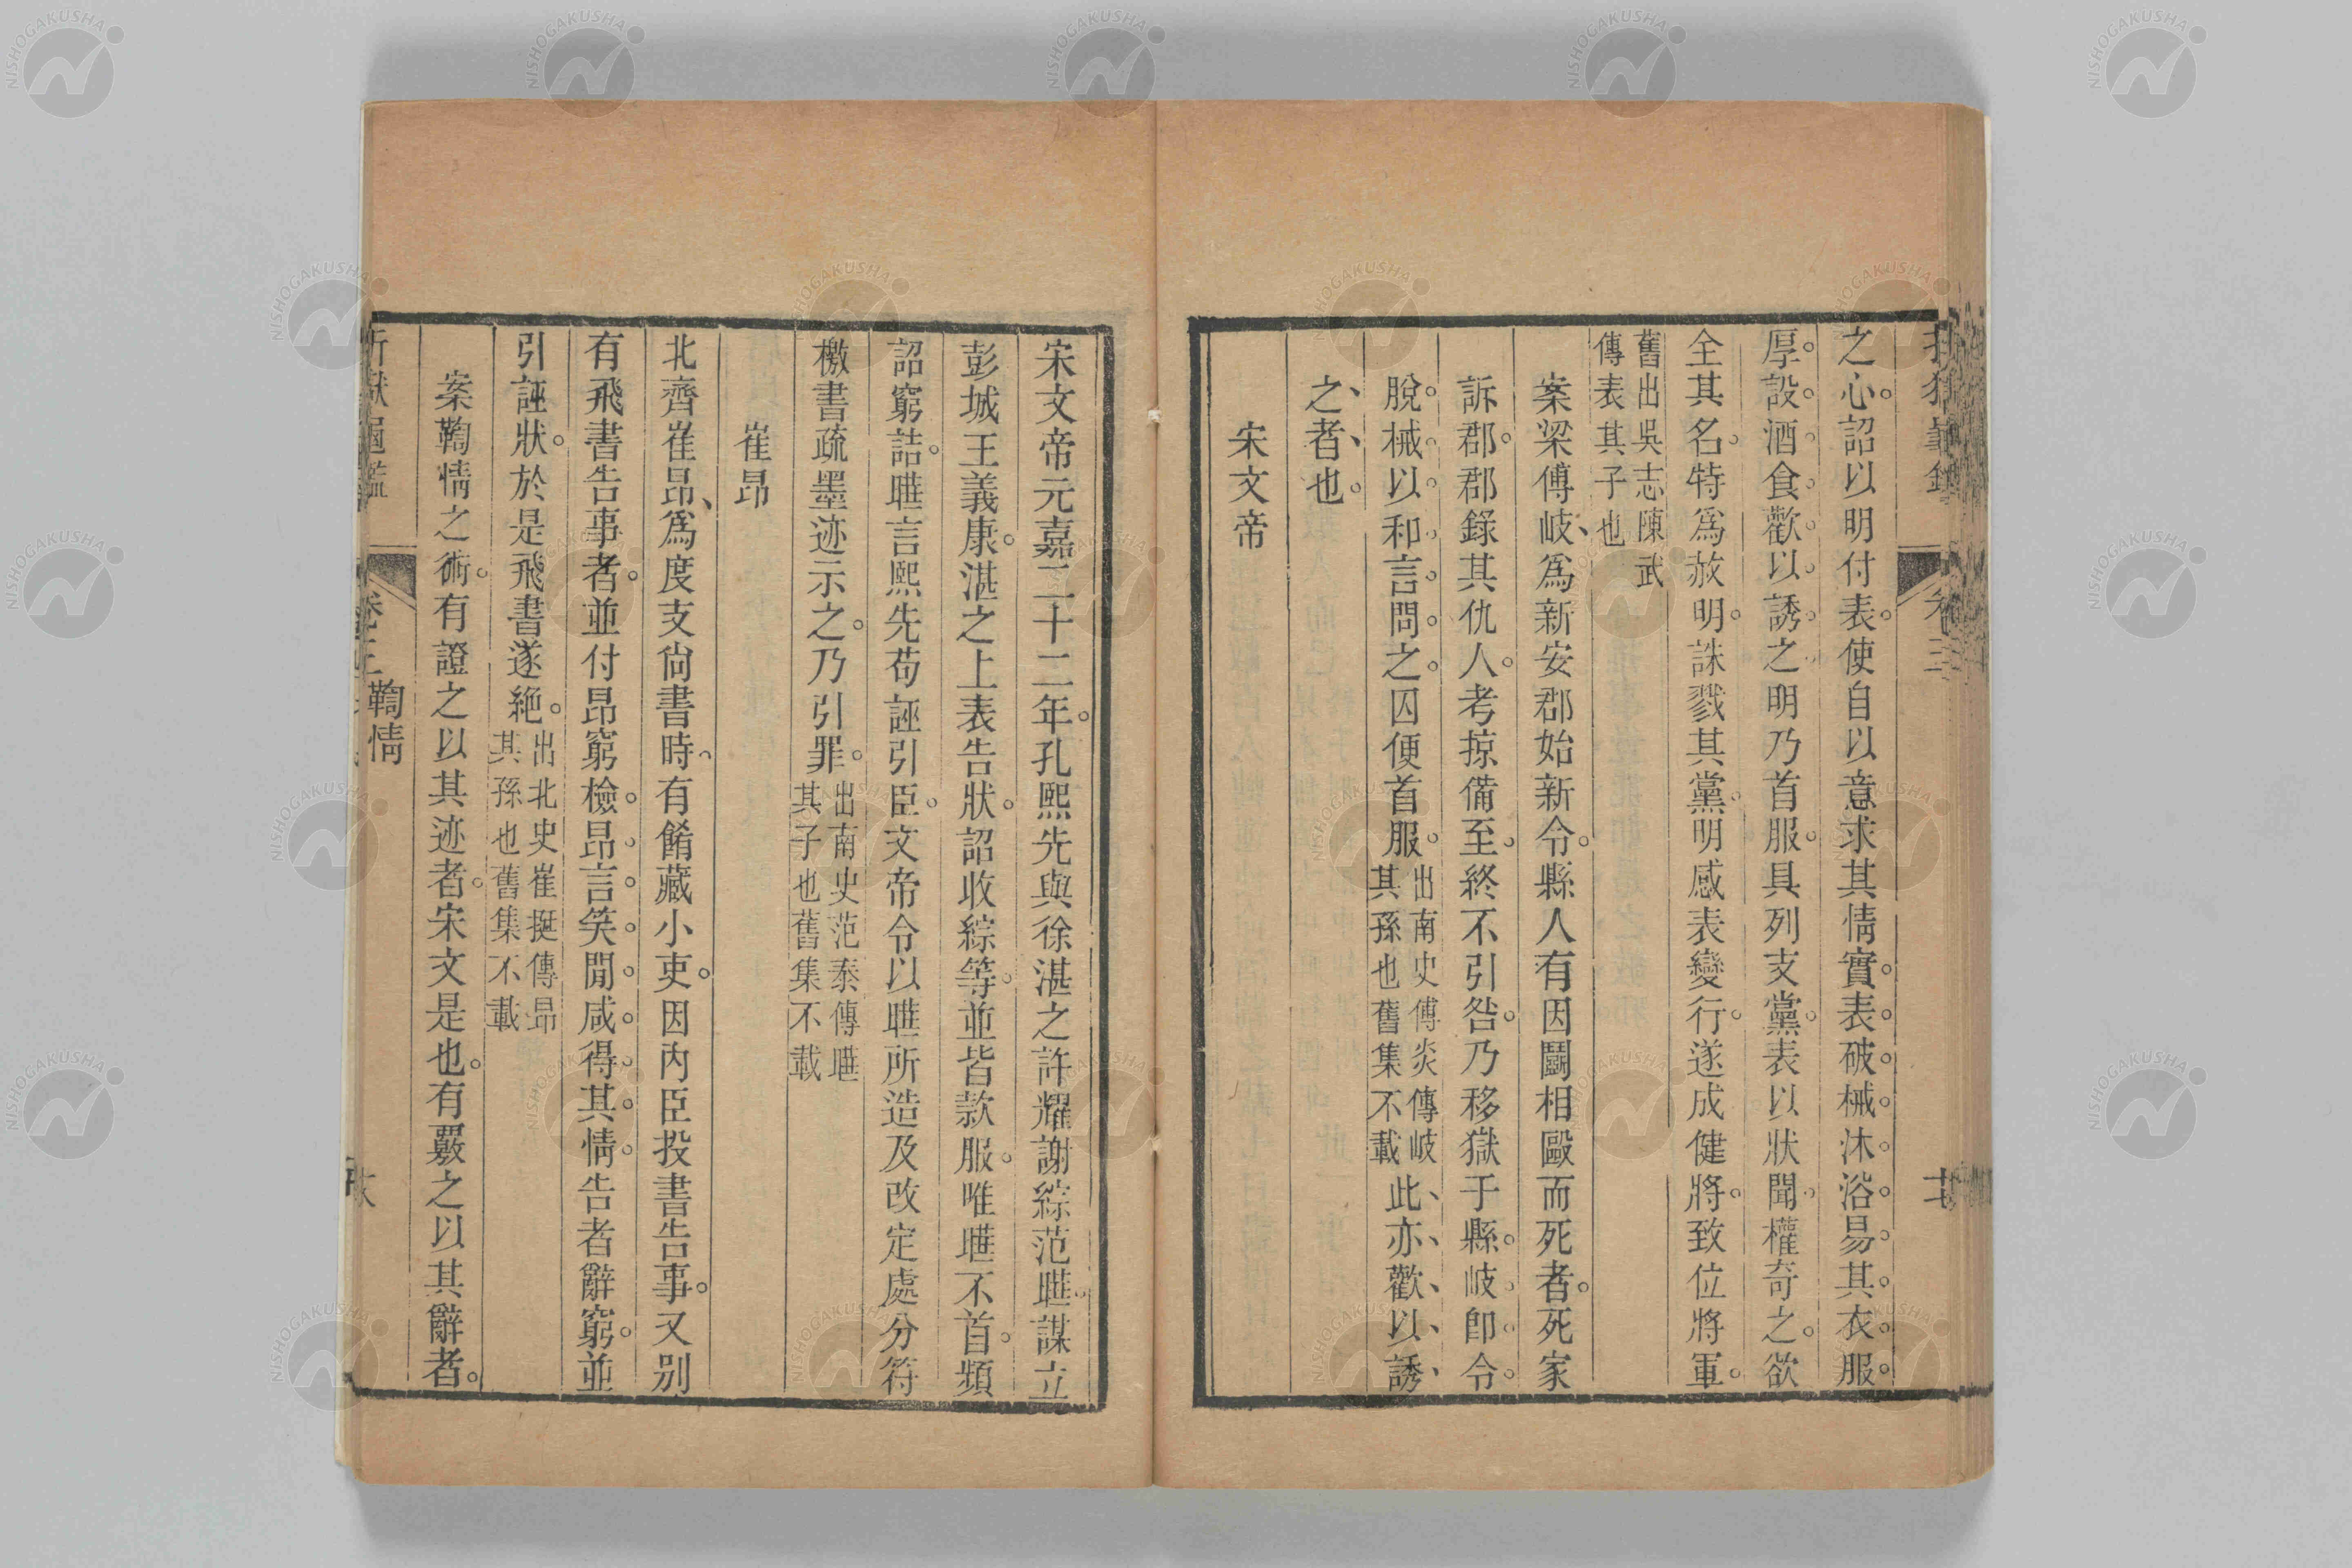 卷三
十七
之心。詔以明付表。使自以意求其情實。表。破。械。沐。浴。易。其。衣。服。
厚。設。酒。食。歡。以。誘。之。明乃首服。具列支黨。表以狀聞。權奇之。欲
全其名。特為赦明。誅戮其黨。明感表變行。遂成健將。致位將軍。
舊出吳志陳武
傳表其子也
案梁傅岐、為新安郡始新令。縣人有因鬭相毆而死者。死家
訴郡。郡錄其仇人。考掠備至。終不引咎。乃移獄于縣。岐。即。令。
脫。械。以。和。言。問。之。囚便首服。出南史傅炎傳岐
其孫也舊集不載此、亦、歡、以、誘、
之、者、也。
宋文帝
宋文帝元嘉二十二年。孔熙先與徐湛之許耀謝綜范曄。謀立
彭城王義康。湛之上表告狀。詔收綜等。並皆款服。唯曄不首。頻
詔窮詰。曄言熙先苟誣引臣。文帝令以曄所造及改定處分符
檄書疏墨迹示之。乃引罪。出南史范泰傳曄
其子也舊集不載
崔昂
北齊崔昂、為度支尚書時、有餚藏小吏。因內臣投書告事。又別
有飛書告事者。並付昂窮檢。昂。言。笑。閒。咸。得。其。情。告者辭窮。並
引誣狀。於是飛書遂絕。出北史崔挺傳昂
其孫也舊集不載
案鞫情之術。有證之以其迹者。宋文是也。有覈之以其辭者。
折獄龜鑑
鞫情